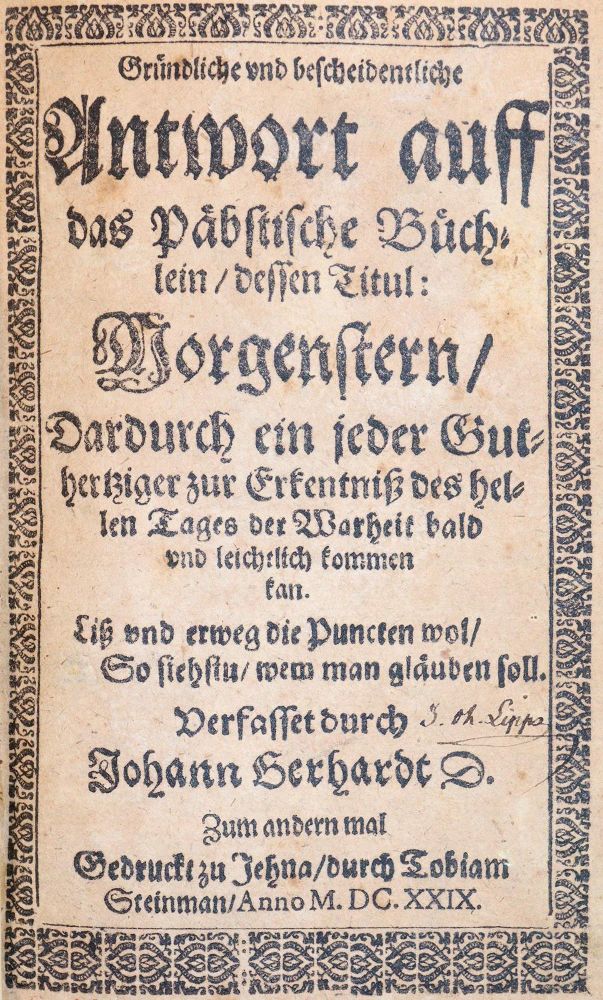 Gründliche vnd bescheidentliche
Antwort auff
das Päbstische Büch-
lein / dessen Titul:
Morgenstern /
Dardurch ein jeder Gut-
hertziger zur Erkentniß des hel-
len Tages der Warheit bald
vnd leichtlich kommen
kan.
Liß vnd erweg die Puncten wol /
So siehstu / wem man gläuben soll.
Verfasset durch
Johann Gerhardt D.
Zum andern mal
Gedruckt zu Jehna / durch Tobiam
Steinman / Anno M. DC. XXIX.